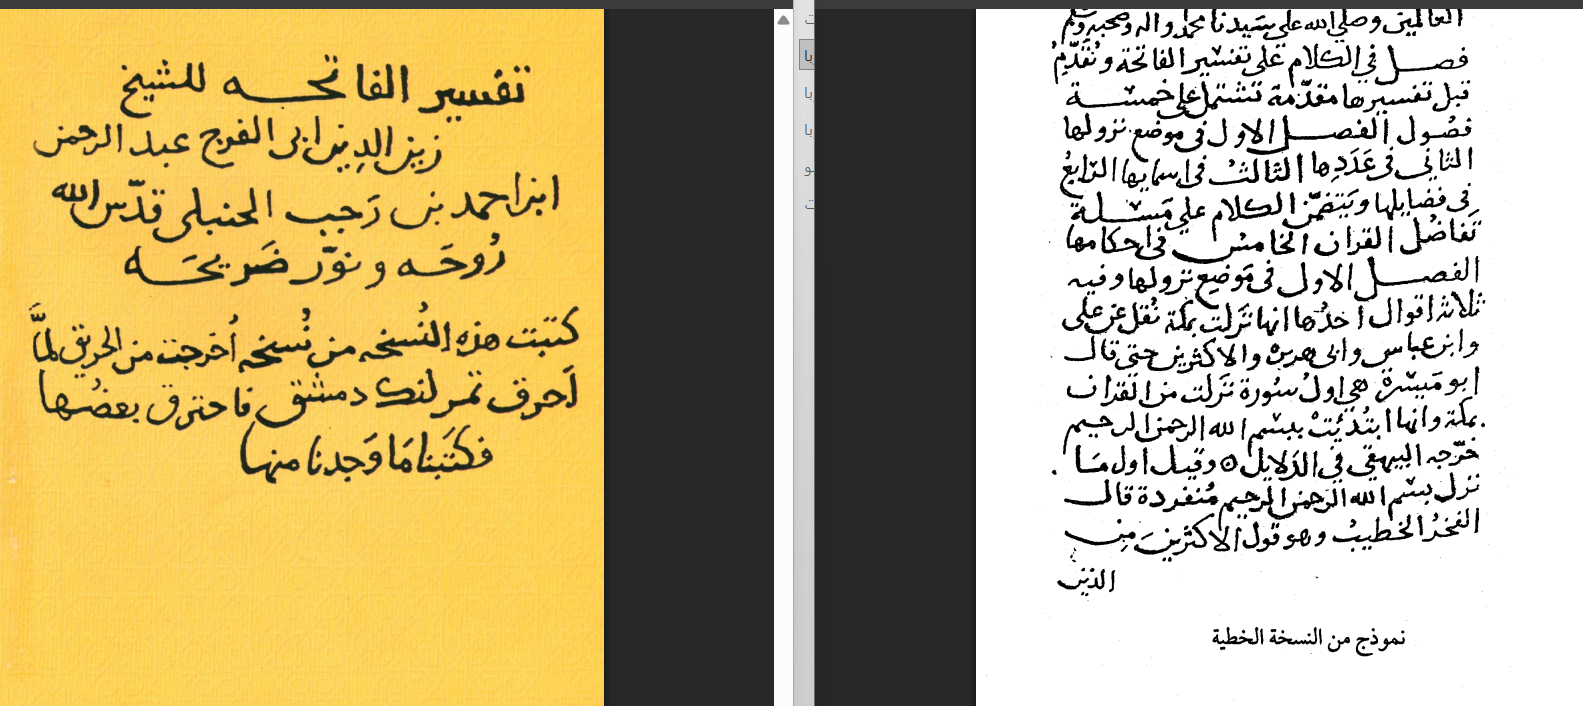 تفسير الفاتحه للشيخ
زين الدين ابى الفرج عبد الرحمن
ابن احمد بن رَجب الحنبلى قدّس الله
رُوحَه ونوّر ضَريحَه
كتبت هذه النُسخه من نُسخه اُخرجت من الحريق لمَّا
اَحرق تمرلنك دمشق فاحترق بعضُها
فكتَبنا مَا وَجدنا منها
العالمين وصلى الله على سيدنا محمد واله وصحبه وسلم
فصل في الكلام على تفسير الفاتحة ونُقَدّمُ
قبل تفسيرها مقدّمة تشتمل على خمسة
فصُول الفصل الاول فى موضع نزولها
الثانى فى عَدَدِها الثالث فى اسمايها الرابعُ
فى فضايلها ويتضمّن الكلام على مَسئلة
تَفاضُل القران الخامس فى احكامها
الفصل الاول فى مَوضع نزولها وفيه
ثلاثة اقوال احدُها انها نزلت بمكة نُقل عن على
وابن عباس وابى هريره والاكثرين حتى قال
ابو مَيسَرة هى اولُ سُورة نَزلت من القران
بمكة وانها ابتُدئِت ببسم الله الرحمن الرحيم
خرّجه البيهقي في الدَلايل ⊙ وقيل اول مَا
نزل بسم الله الرحمن الرحيم مُنفردة قال
الفخرُ الخطيبُ وهو قول الاكثرينَ مِن
الذين
نموذج من النسخة الخطية
با
با
با
و
ت